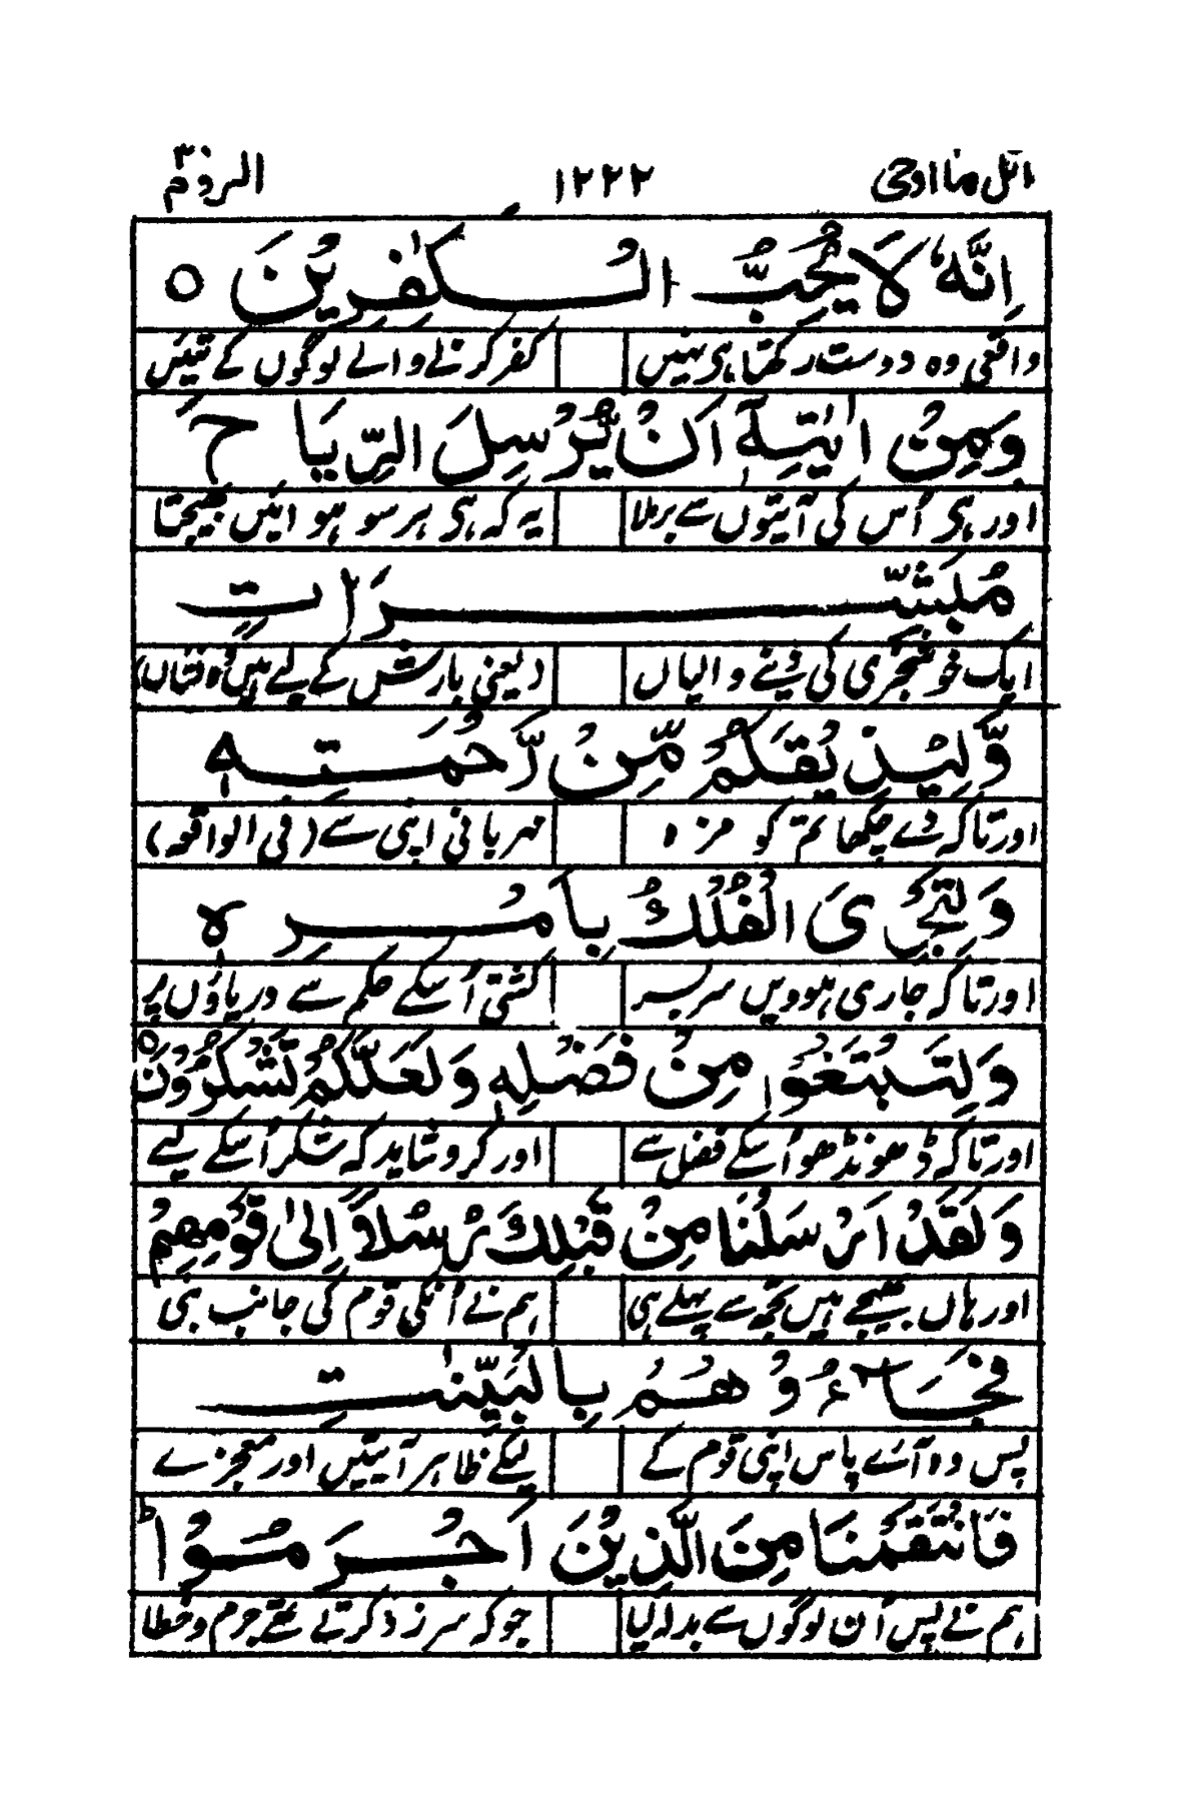 اتل ما اوحی ۱۲۲۲ الروم ۳۰
اِنَّهٗ لَا یُحِبُّ الْکٰفِرِیْنَ ○
واقعی وہ دوست رکھتا ہی نہیں کفر کرنے والے لوگوں کے تئیں
وَمِنْ اٰیٰتِهٖٓ اَنْ یُّرْسِلَ الرِّیَاحَ
اور ہی اُس کی آیتوں سے برملا یہ کہ ہی ہر سو ہوائیں بھیجتا
مُبَشِّرَاتٍ
ایک خوشخبری کی دینے والیاں (یعنی بارش کے لیے ہیں وہ نشاں)
وَّلِیُذِیْقَکُمْ مِّنْ رَّحْمَتِهٖ
اور تاکہ دے چکھا تم کو مزہ مہربانی اپنی سے (فی الواقعہ)
وَلِتَجْرِیَ الْفُلْکُ بِاَمْرِهٖ
اور تاکہ جاری ہوویں سربسر کشتی اُسکے حکم سے دریاؤں پر
وَلِتَبْتَغُوْا مِنْ فَضْلِهٖ وَلَعَلَّکُمْ تَشْکُرُوْنَ ○
اور تاکہ ڈھونڈھو اُسکے فضل سے اور کرو شاید کہ شکر اُسکے لیے
وَلَقَدْ اَرْسَلْنَا مِنْ قَبْلِکَ رُسُلًا اِلٰی قَوْمِهِمْ
اور ہاں بھیجے ہیں تجھ سے پہلے ہی ہم نے اُنکی قوم کی جانب نبی
فَجَآءُوْهُمْ بِالْبَیِّنٰتِ
پس وہ آئے پاس اپنی قوم کے لیکے ظاہر آیتیں اور معجزے
فَانْتَقَمْنَا مِنَ الَّذِیْنَ اَجْرَمُوْا ط
ہم نے پس اُن لوگوں سے بدلہ لیا جو کہ سرزد کرتے تھے جرم و خطا